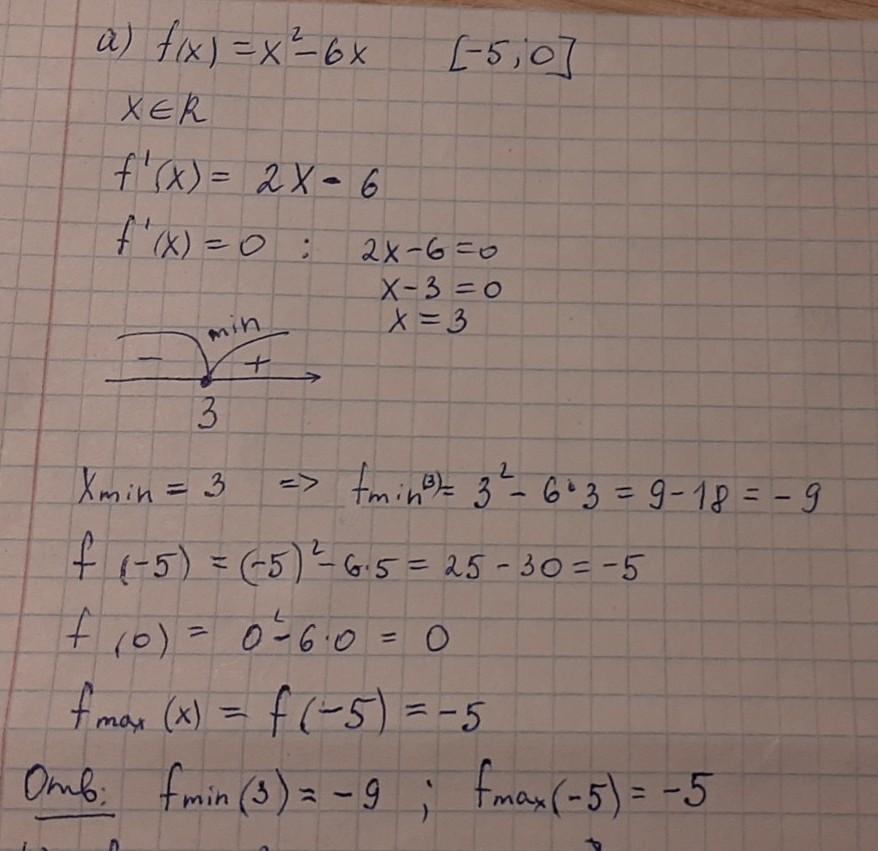 а) f(x) = x² - 6x [-5; 0]
x ∈ R
f'(x) = 2x - 6
f'(x) = 0 : 2x - 6 = 0
x - 3 = 0
x = 3
min
- +
3
Xmin = 3 => fmin(3) = 3² - 6·3 = 9 - 18 = -9
f (-5) = (-5)² - 6·5 = 25 - 30 = -5
f (0) = 0² - 6·0 = 0
fmax (x) = f(-5) = -5
Отв: fmin(3) = -9 ; fmax(-5) = -5